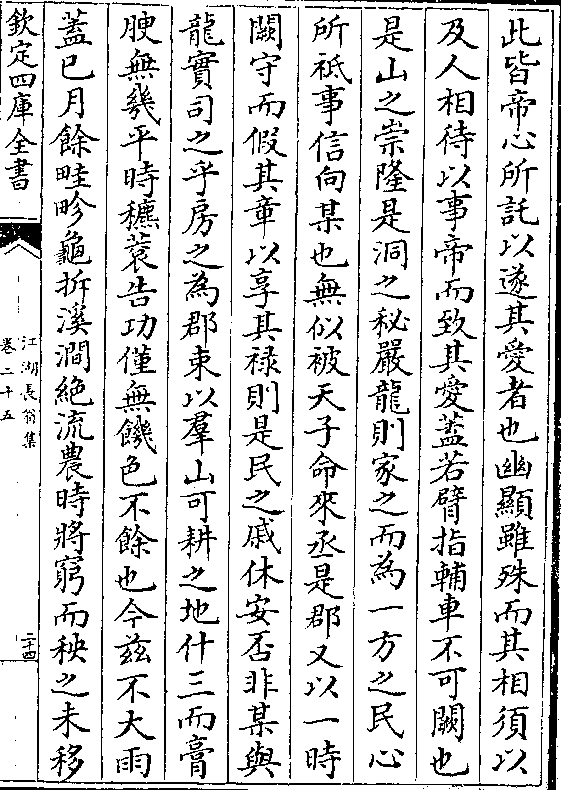 此皆帝心所託以遂其愛者也幽顯雖殊而其相須以
及人相待以事帝而致其愛蓋若臂指輔車不可闕也
是山之崇隆是洞之秘嚴龍則家之而為一方之民心
所祇事信向某也無似被天子命來丞是郡又以一時
闕守而假其章以享其禄則是民之戚休安否非某與
龍實司之乎房之為郡束以羣山可耕之地什三而膏
腴無幾平時穮蓘告功僅無饑色不餘也今兹不大雨
蓋已月餘畦畛龜拆溪澗絕流農時將窮而秧之未移
欽定四庫全書
江湖長翁集
卷二十五
二十四